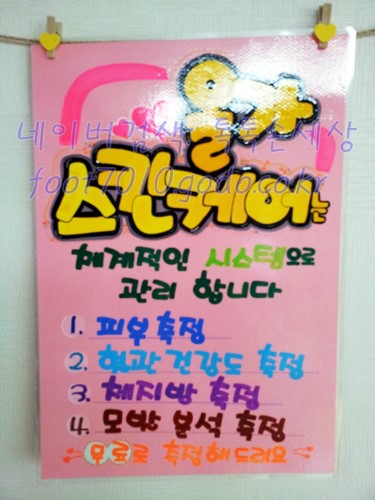 올가
네이버검색 톡톡튀는세상
foot7010.godo.co.kr
스킨케어는
체계적인 시스템으로
관리 합니다
1. 피부측정
2. 혈관건강도 측정
3. 체지방 측정
4. 모발 분석 측정
무료로 측정해드려요